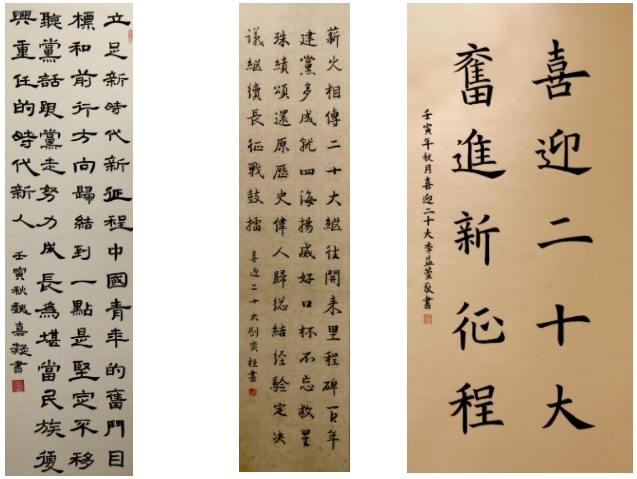 立足新時代新征程中國青年的奮鬥目
標和前行方向歸結到一點是堅定不移
聽黨話跟黨走努力成長為堪當民族復
興重任的時代新人
壬寅秋魏嘉凝書
薪火相傳二十大繼往開来里程碑百年
建黨多成就四海揚威好口杯不忘救星
殊績頌還原歷史偉人歸總結經驗定決
議繼續長征戰鼓擂
喜迎二十大劉奕桓書
喜迎二十大
奮進新征程
壬寅年秋月喜迎二十大季益萱敬書